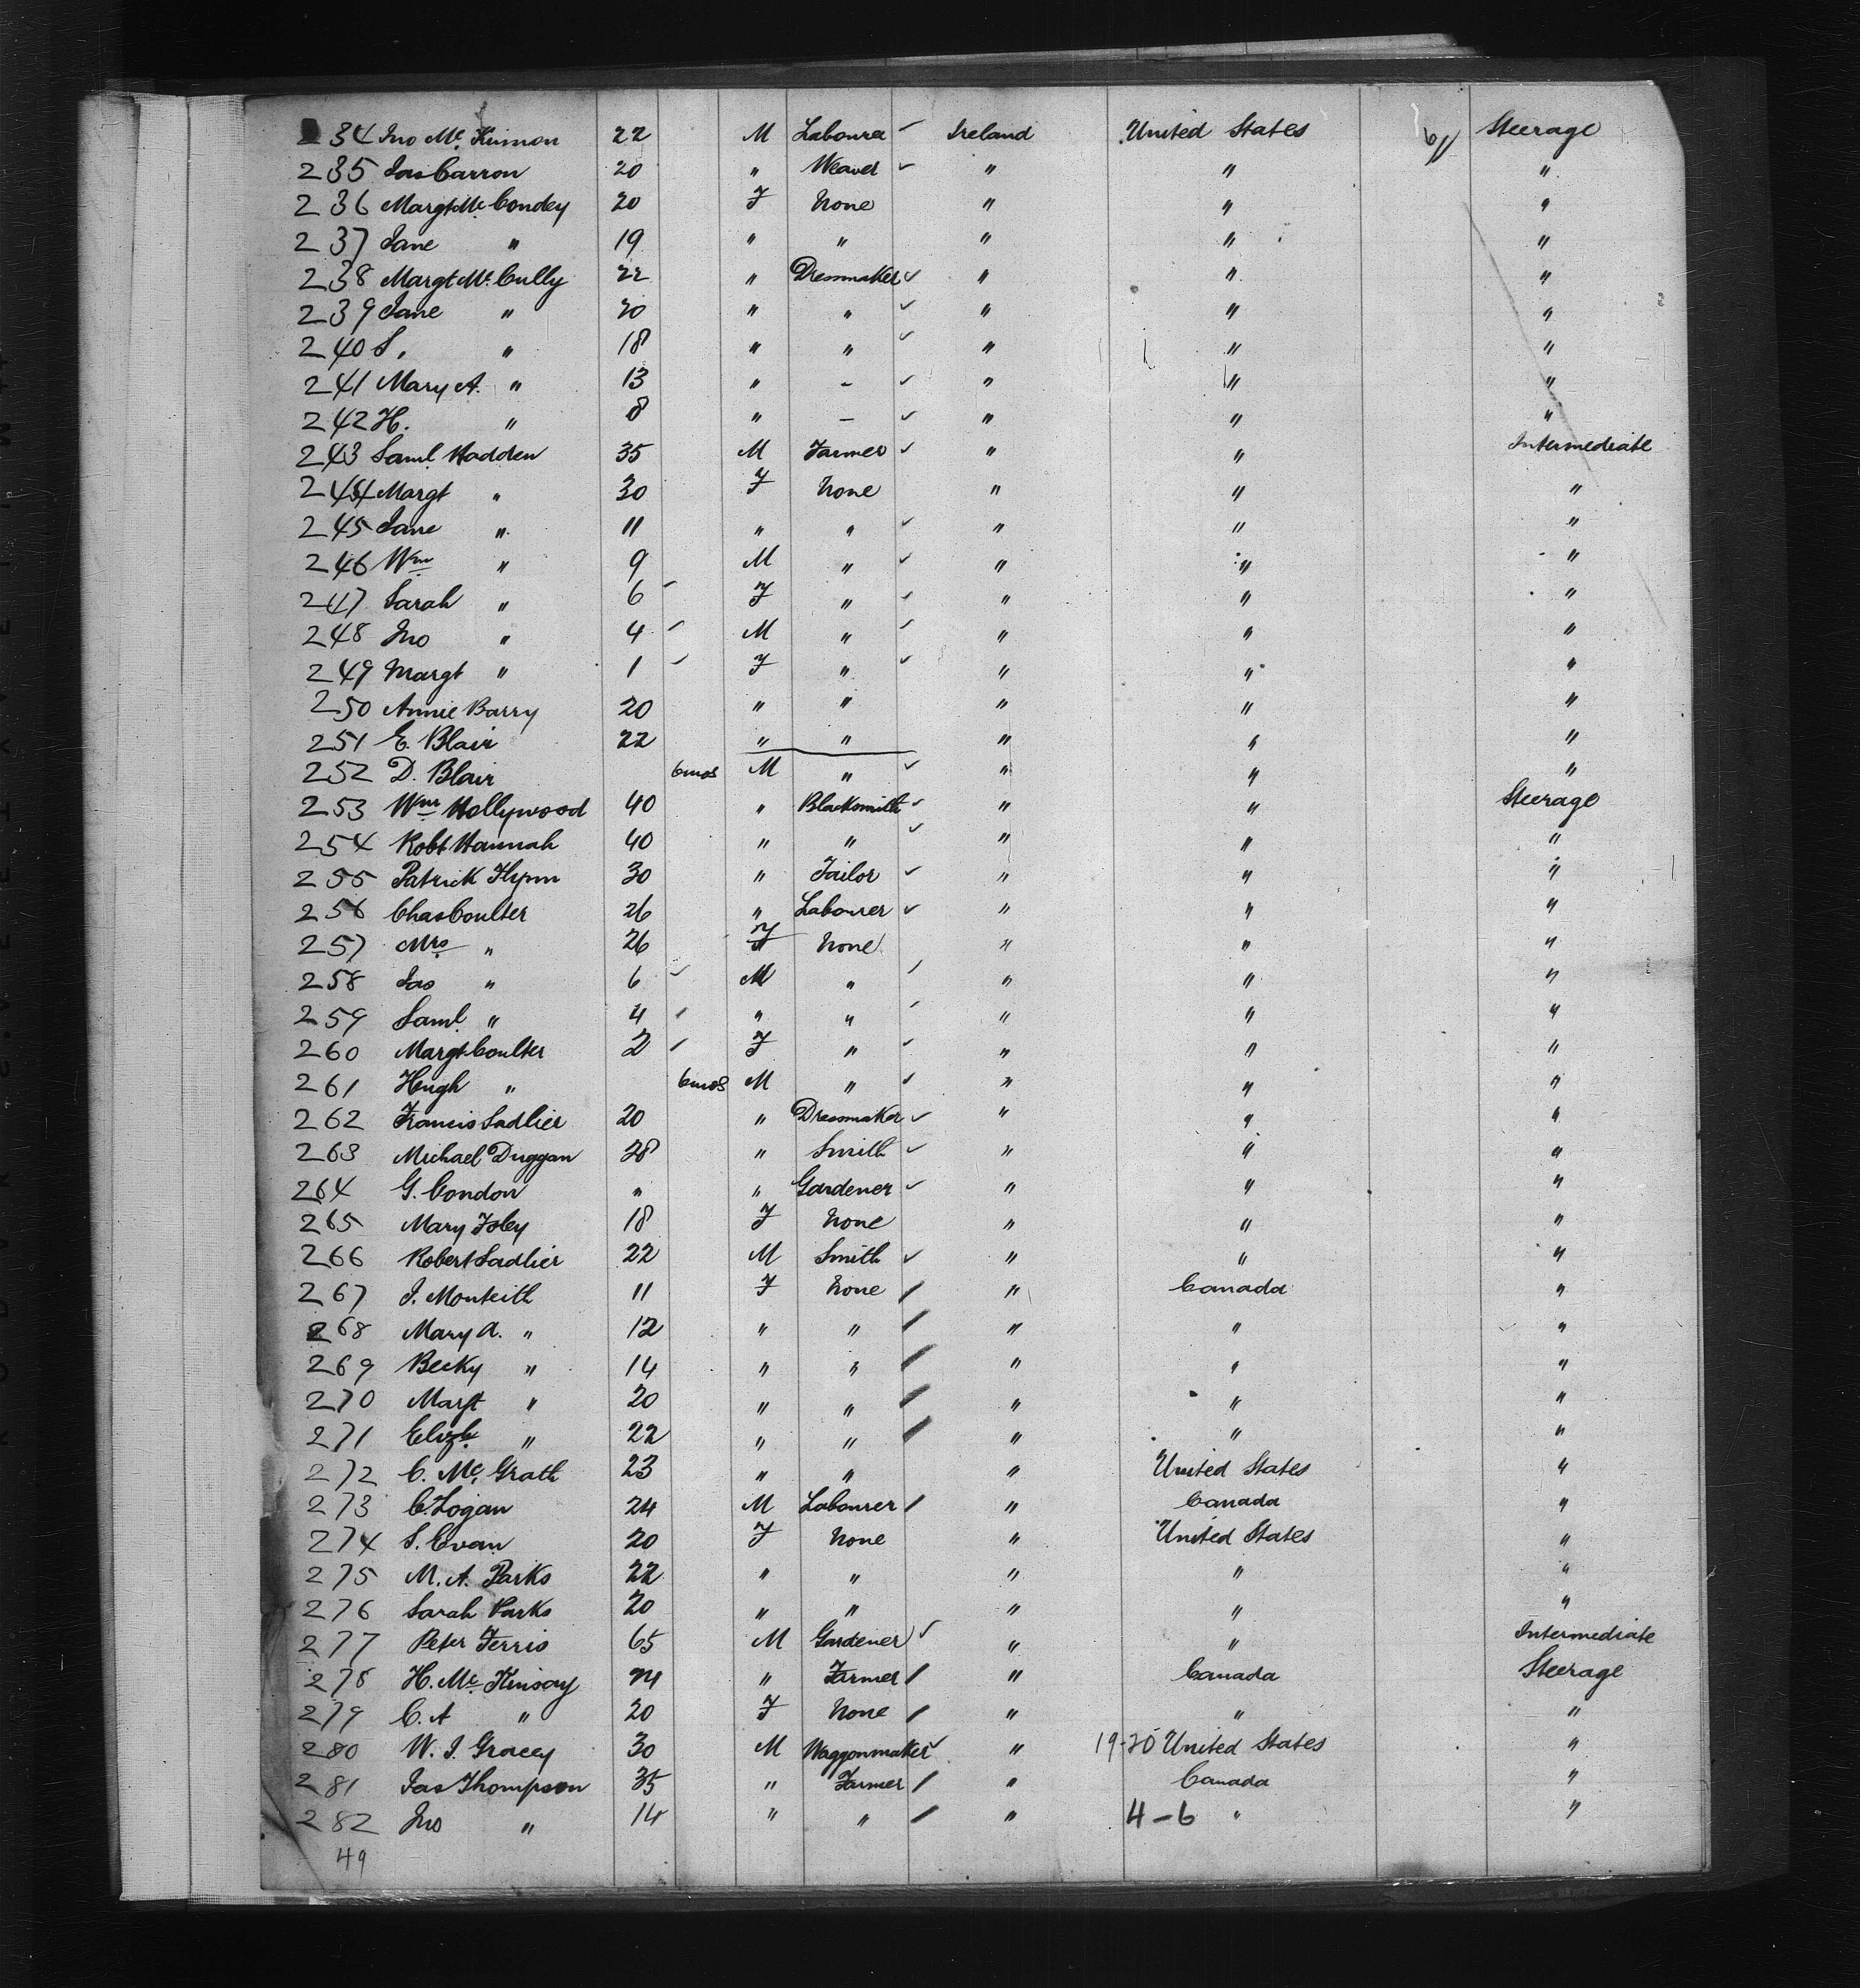 234 Jno Mc. Kinnon 22 M Labourer ✓ Ireland United States 6/ Steerage
235 Jas Carron 20 " Weaver ✓ " " "
236 Margt Mc Condey 20 F None " " "
237 Jane " 19 " " " " "
238 Margt Mc. Cully 22 " Dressmaker ✓ " " "
239 Jane " 20 " " ✓ " " "
240 S. " 18 " " ✓ " " "
241 Mary A. " 13 " - ✓ " " "
242 H. " 8 " - ✓ " " "
243 Saml Hadden 35 M Farmer ✓ " " Intermediate
244 Margt " 30 F None " " "
245 Jane " 11 " " ✓ " " "
246 Wm " 9 M " ✓ " " "
247 Sarah " 6 ✓ F " ✓ " " "
248 Jno " 4 ✓ M " ✓ " " "
249 Margt " 1 ✓ F " ✓ " " "
250 Annie Barry 20 " " " " "
251 E. Blair 22 " " " " "
252 D. Blair 6mos M " ✓ " " "
253 Wm Hollywood 40 " Blacksmith ✓ " " Steerage
254 Robt Hannah 40 " " ✓ " " "
255 Patrick Flynn 30 " Tailor ✓ " " "
256 Chas Coulter 26 " Labourer ✓ " " "
257 Mrs " 26 F None " " "
258 Jas " 6 ✓ M " / " " "
259 Saml. " 4 / " " / " " "
260 Margt Coulter 2 / F " ✓ " " "
261 Hugh " 6mos M " ✓ " " "
262 Francis Sadlier 20 " Dressmaker ✓ " " "
263 Michael Duggan 28 " Smith ✓ " " "
264 G. Condon " " Gardener ✓ " " "
265 Mary Foley 18 F None " " "
266 Robert Sadlier 22 M Smith ✓ " " "
267 J. Monteith 11 F None / " Canada "
268 Mary A. " 12 " " / " " "
269 Becky " 14 " " / " " "
270 Margt " 20 " " / " " "
271 Elizb. " 22 " " / " " "
272 C. Mc. Grath 23 " " " United States "
273 C. Logan 24 M Labourer / " Canada "
274 S. Evan 20 F None " United States "
275 M. A. Parks 22 " " " " "
276 Sarah Parks 20 " " " " "
277 Peter Ferris 65 M Gardener ✓ " " Intermediate
278 H. Mc Kinsay 24 " Farmer / " Canada Steerage
279 C. A " 20 F None / " " "
280 W. J. Gracey 30 M Waggonmaker ✓ " 19-20 United States "
281 Jas Thompson 35 " Farmer / " Canada "
282 Jno " 14 " " / " 4-6 " "
49